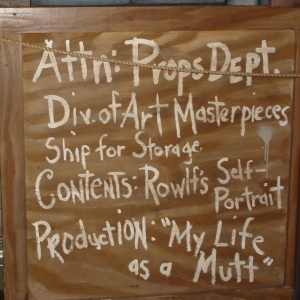 Attn: Props Dept.
Div. of Art Masterpieces
Ship for Storage
Contents: Rowlf's Self-
Portrait
Production: "My Life
as a Mutt"